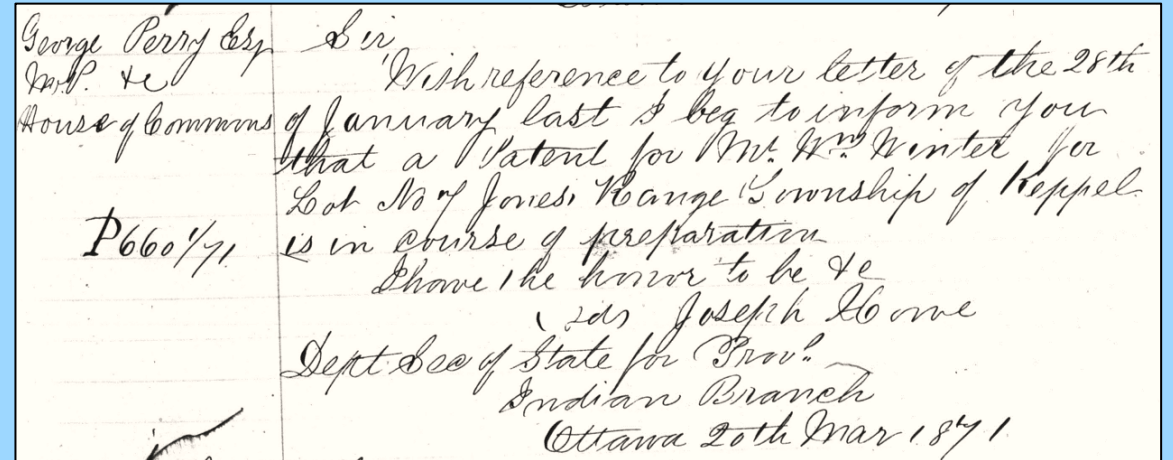 George Perry Esq
M.P. &c
House of Commons
P660 1/71
Sir,
With reference to your letter of the 28th
of January last I beg to inform you
that a Patent for Mr. Wm. Winter for
Lot No 7 Jones, Range Township of Keppel
is in course of preparation
I have the honor to be &c
(sds Joseph Howe
Dept Sec of State for Prov.s
Indian Branch
Ottawa 20th Mar 1871